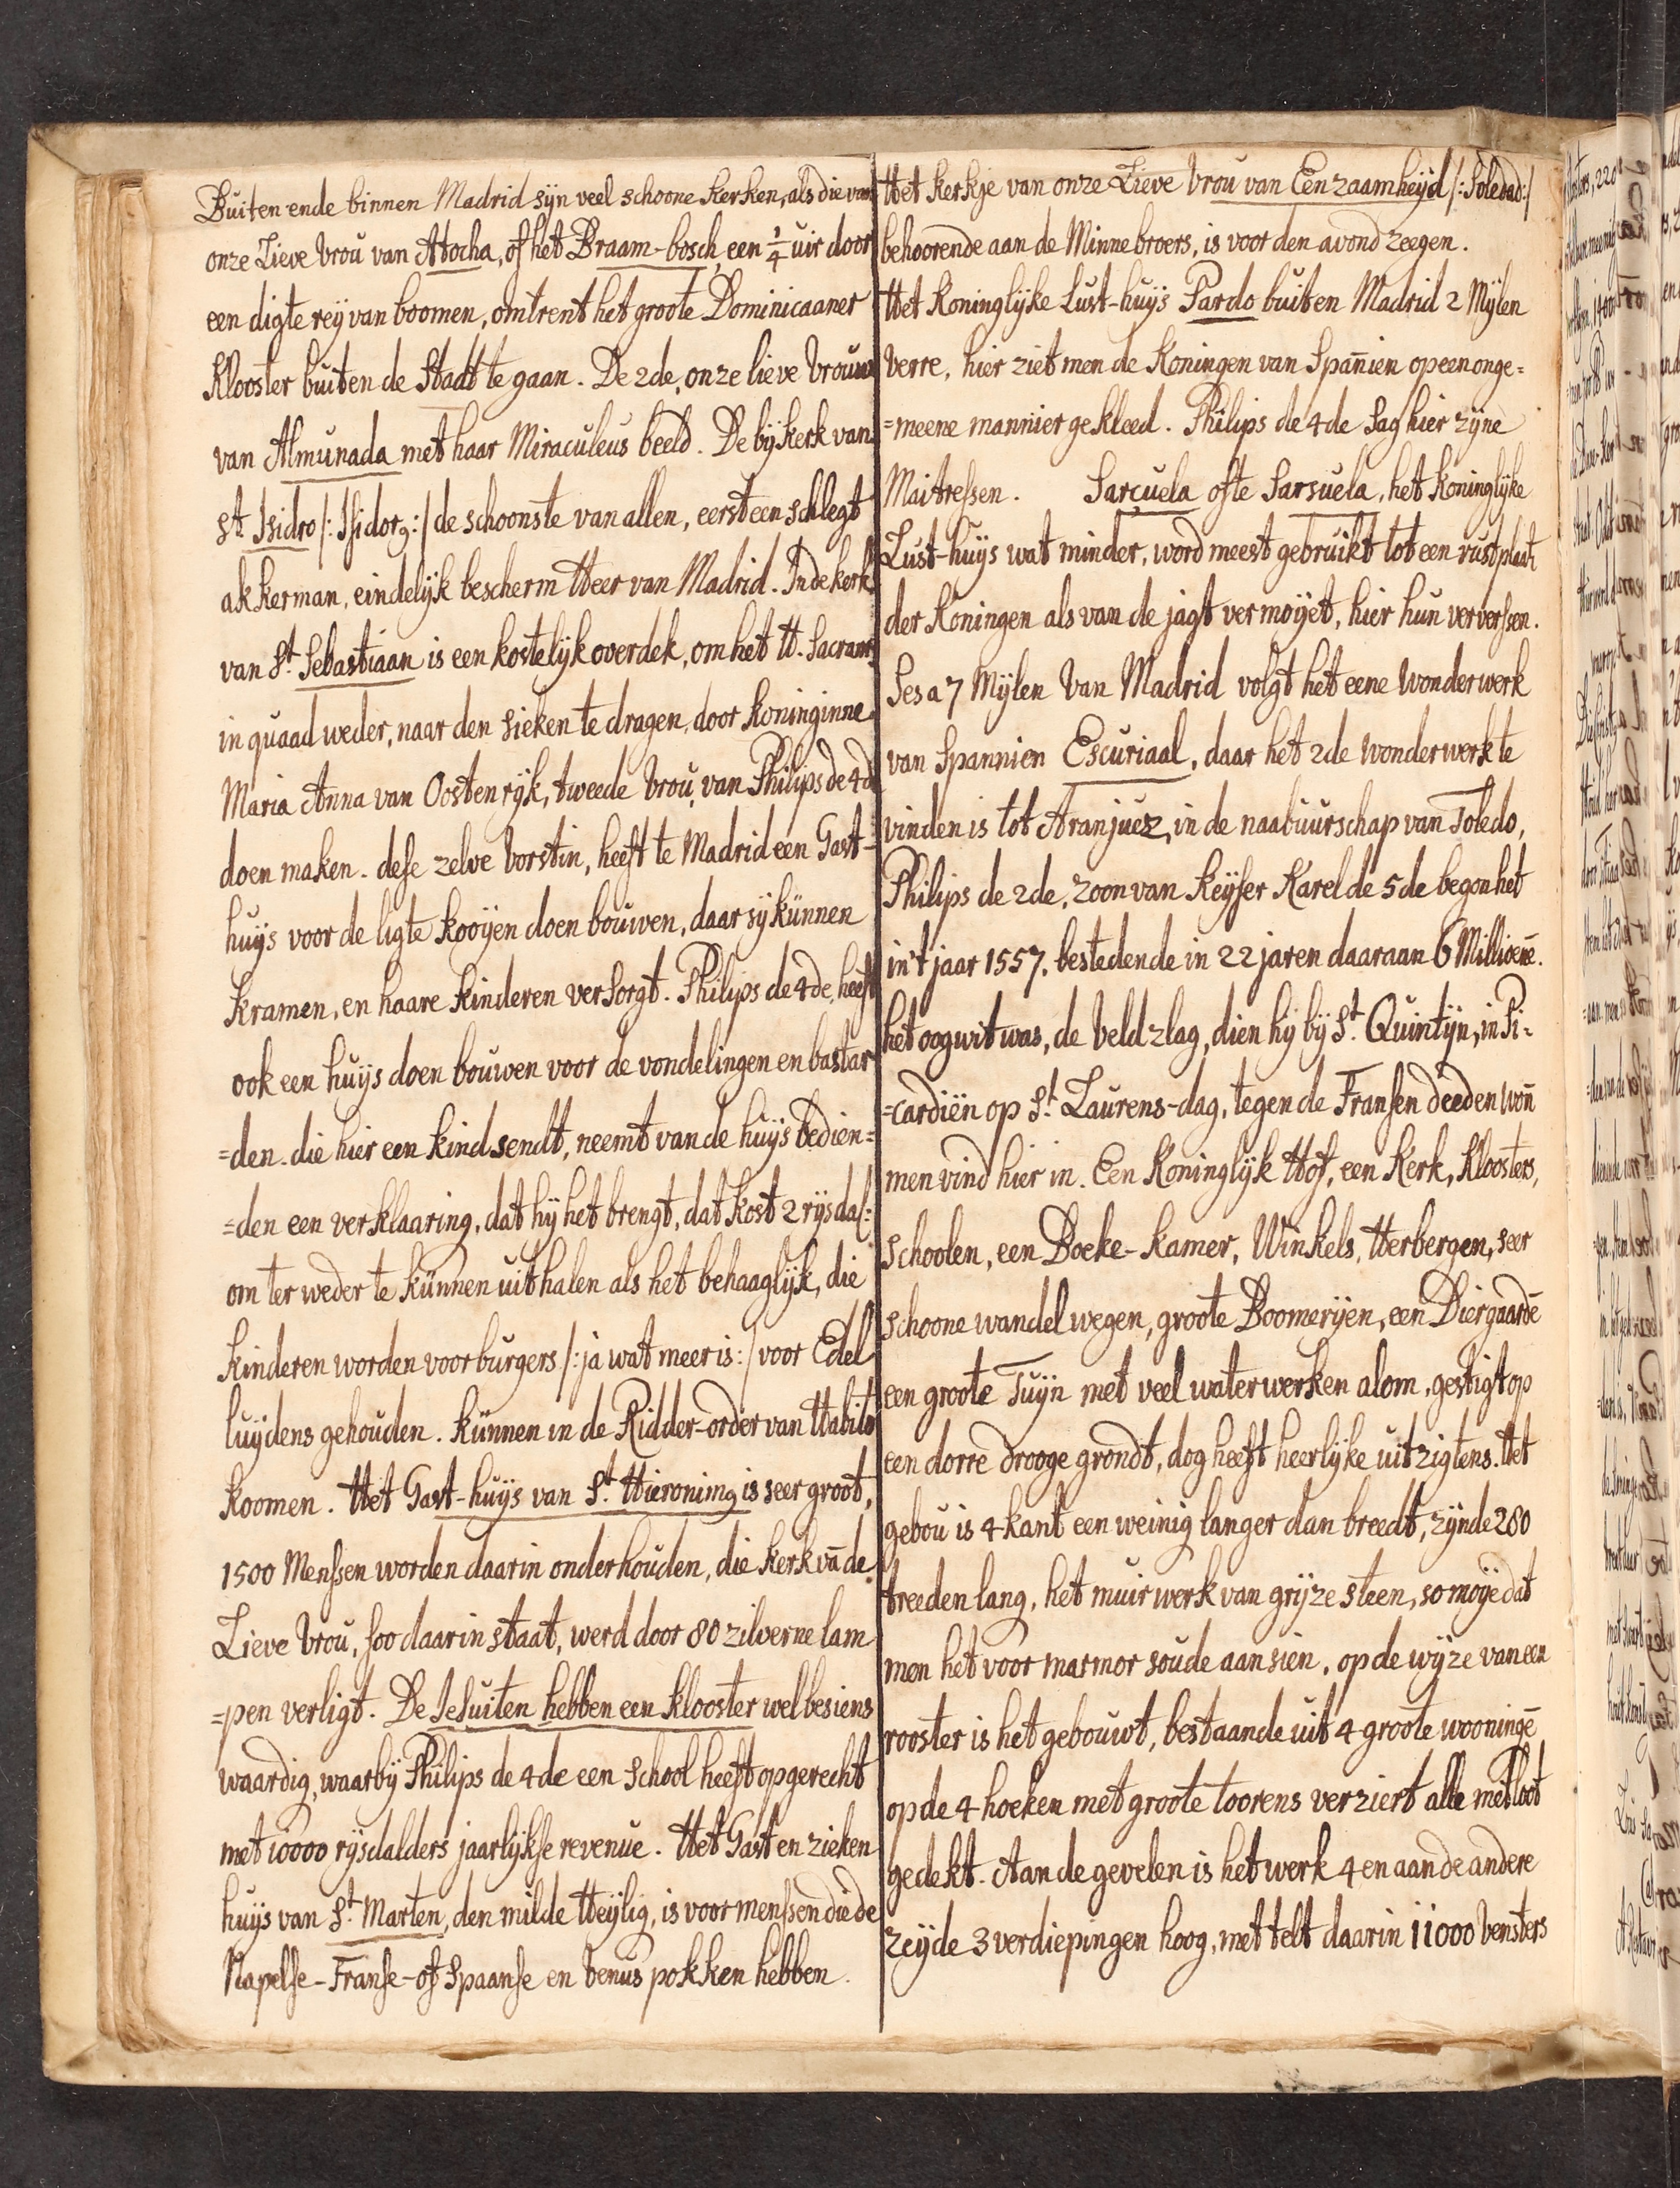 Buiten ende binnen Madrid sijn veel schoone kerken, als die van
onze Lieve Vroŭ van Atocha, of het Braam-bosch, een ¼ uir door
een digte reij van boomen, omtrent het groote Dominicaaner
Klooster buiten de Stadt te gaan. De 2de, onze lieve Vrouw
van Almŭnada met haar Miraculeus beeld. De bijkerk van
St. Isidro /: Isidorg :/ de schoonste van allen, eerst een schlegt
akkerman, eindelijk bescherm Heer van Madrid. In de kerk
van St. Sebastiaan is een kostelijk overdek, om het H. Sacram:
in quaad weder, naar den sieken te dragen, door Koninginne
Maria Anna van Oostenrijk, tweede Vroŭ, van Philips de 4d
doen maken. dese zelve Vorstin, heeft te Madrid een Gast-
huijs voor de ligte kooijen doen bouwen, daar sij kŭnnen
kramen, en haare kinderen versorgt. Philips de 4de, heeft
ook een huijs doen bouwen voor de vondelingen en bastar
=den. die hier een kind sendt, neemt van de huijs bedien=
=den een verklaaring, dat hij het brengt, dat kost 2 rijsdal:
om ter weder te kŭnnen uithalen als het behaaglijk, die
kinderen worden voor burgers /: ja wat meer is :/ voor Edel
luijdens gehouden. kŭnnen in de Ridder-order van Habito
koomen. Het Gast-huijs van St. Hieronimg is seer groot,
1500 Menssen worden daarin onderhouden, die kerk vā de
Lieve Vroŭ, soo daarin staat, werd door 80 zilverne lam
=pen verligt. De Jesuiten hebben een klooster wel besiens
waardig, waarbij Philips de 4de een School heeft opgerecht
met 10000 rijsdalders jaarlijkse revenue. Het Gast en zieken
huijs van St. Marten, den milde Heijlig, is voor menssen die de
Napelse-Franse-of Spaanse en Venus pokken hebben.
Het kerkje van onze Lieve Vroŭ van Eenzaamheijd /: Soledad :/
behoorende aan de Minnebroers, is voor den avond zeegen.
Het Koninglijke Lust-huijs Pardo buiten Madrid 2 Mijlen
verre, hier ziet men de Koningen van Span̄ien op een onge=
=meene mannier gekleed. Philips de 4de sag hier zijne
Maitressen. Sarçuela ofte Sarsuela, het Koninglijke
Lust-huijs wat minder, word meest gebruikt tot een rustplaats
der Koningen als van de jagt vermoijet, hier hun verversen.
Ses a 7 Mijlen van Madrid volgt het eene wonderwerk
van Spannien Escuriaal, daar het 2de wonderwerk te
vinden is tot Aranjuez, in de naabuurschap van Toledo,
Philips de 2de, zoon van Keijser Karel de 5de begon het
in't jaar 1557. bestedende in 22 jaren daaraan 6 Millioenē.
het oogwit was, de Veldzlag, dien hij bij St. Quintijn, in Pi=
=cardiën op St. Laurens-dag, tegen de Fransen deeden won̄
men vind hier in. Een Koninglijk Hof, een Kerk, Kloosters,
Schoolen, een Boeke-kamer, Winkels, Herbergen, seer
schoone wandelwegen, groote Boomerijen, een Diergaardē
een groote Tuijn met veel waterwerken alom, gestigt op
een dorre drooge grondt, dog heeft heerlijke uitzigtens. Het
geboŭ is 4 kant een weinig langer dan breedt, zijnde 280
treeden lang, het muirwerk van grijze steen, so moije dat
men het voor marmor soude aansien, op de wijze van een
rooster is het gebouwt, bestaande uit 4 groote wooningē
op de 4 hoeken met groote toorens verziert alle met loot
gedekt. Aan de gevelen is het werk 4 en aan de andere
zeijde 3 verdiepingen hoog, met telt daarin 11000 Vensters